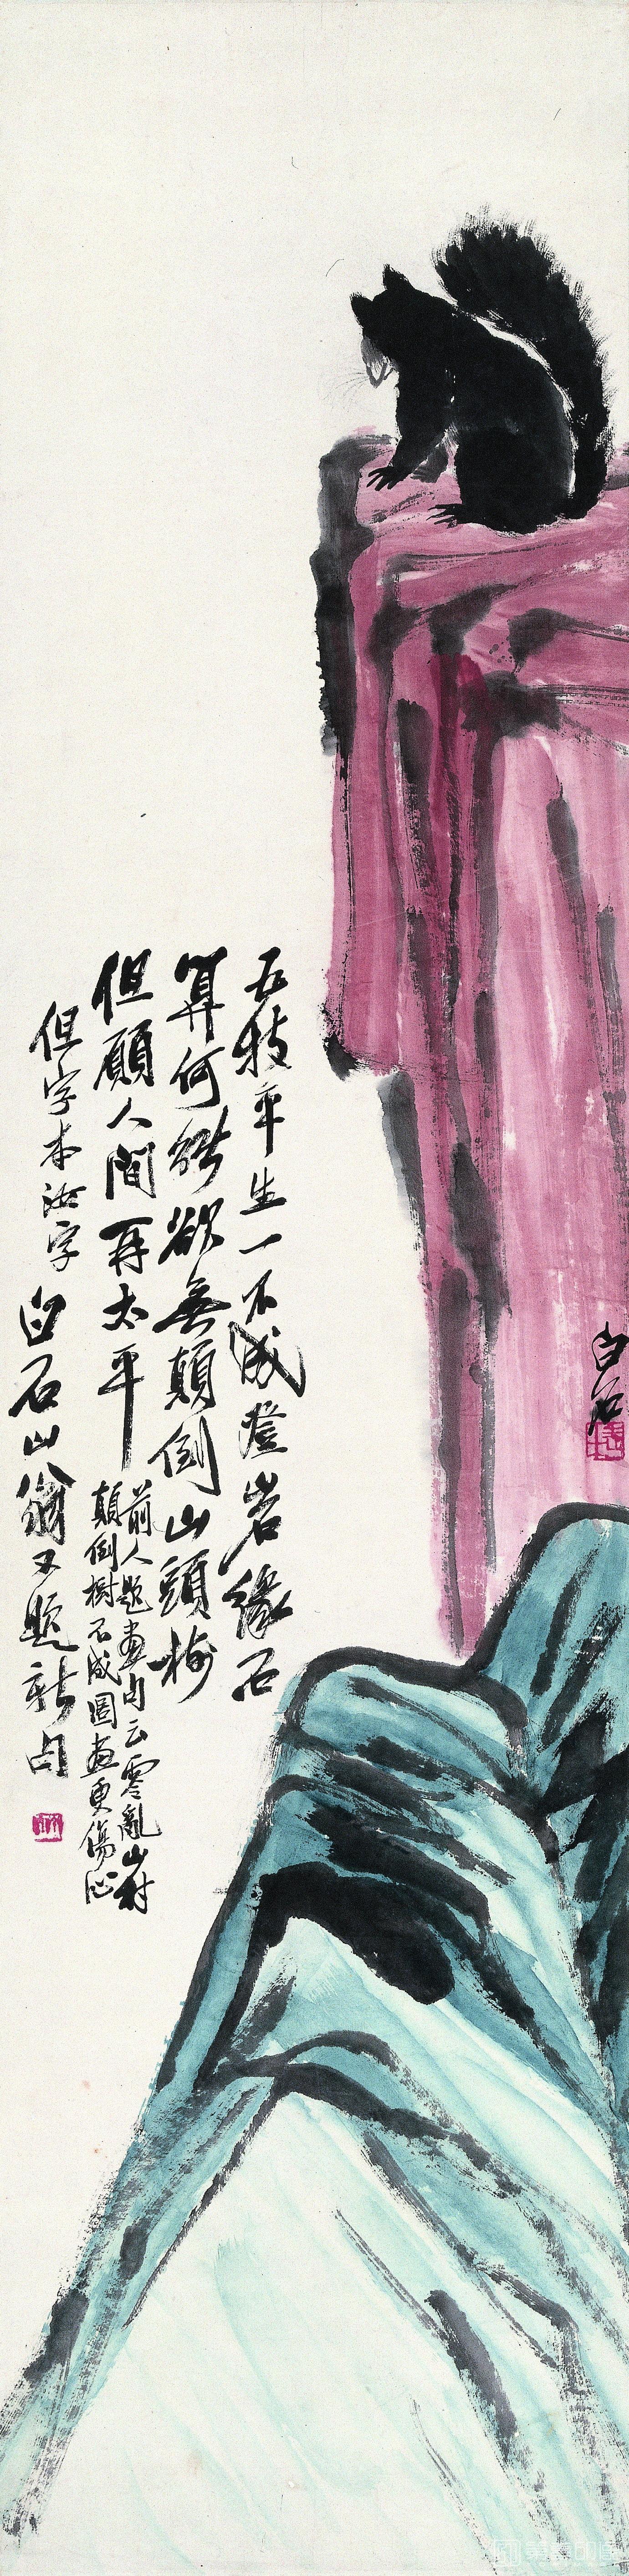 五技平生一不成登岩緣石
算何能欲無顛倒山頭樹
但願人間再太平
前人題畫句云零亂山村
顛倒樹不成圖畫更傷心
但字本汝字
白石山翁又題新句
白石